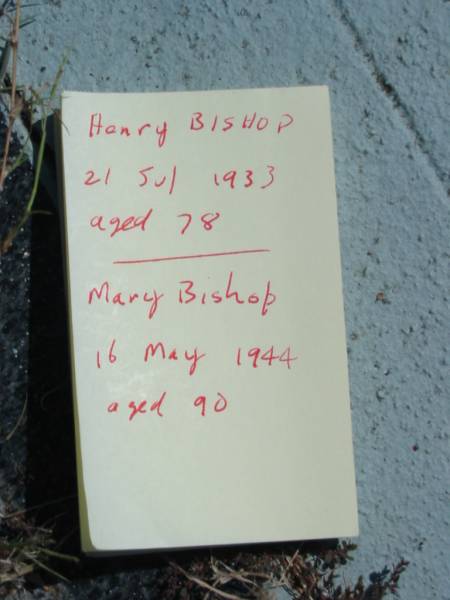 Henry BISHOP
21 Jul 1933
aged 78
Mary Bishop
16 May 1944
aged 90